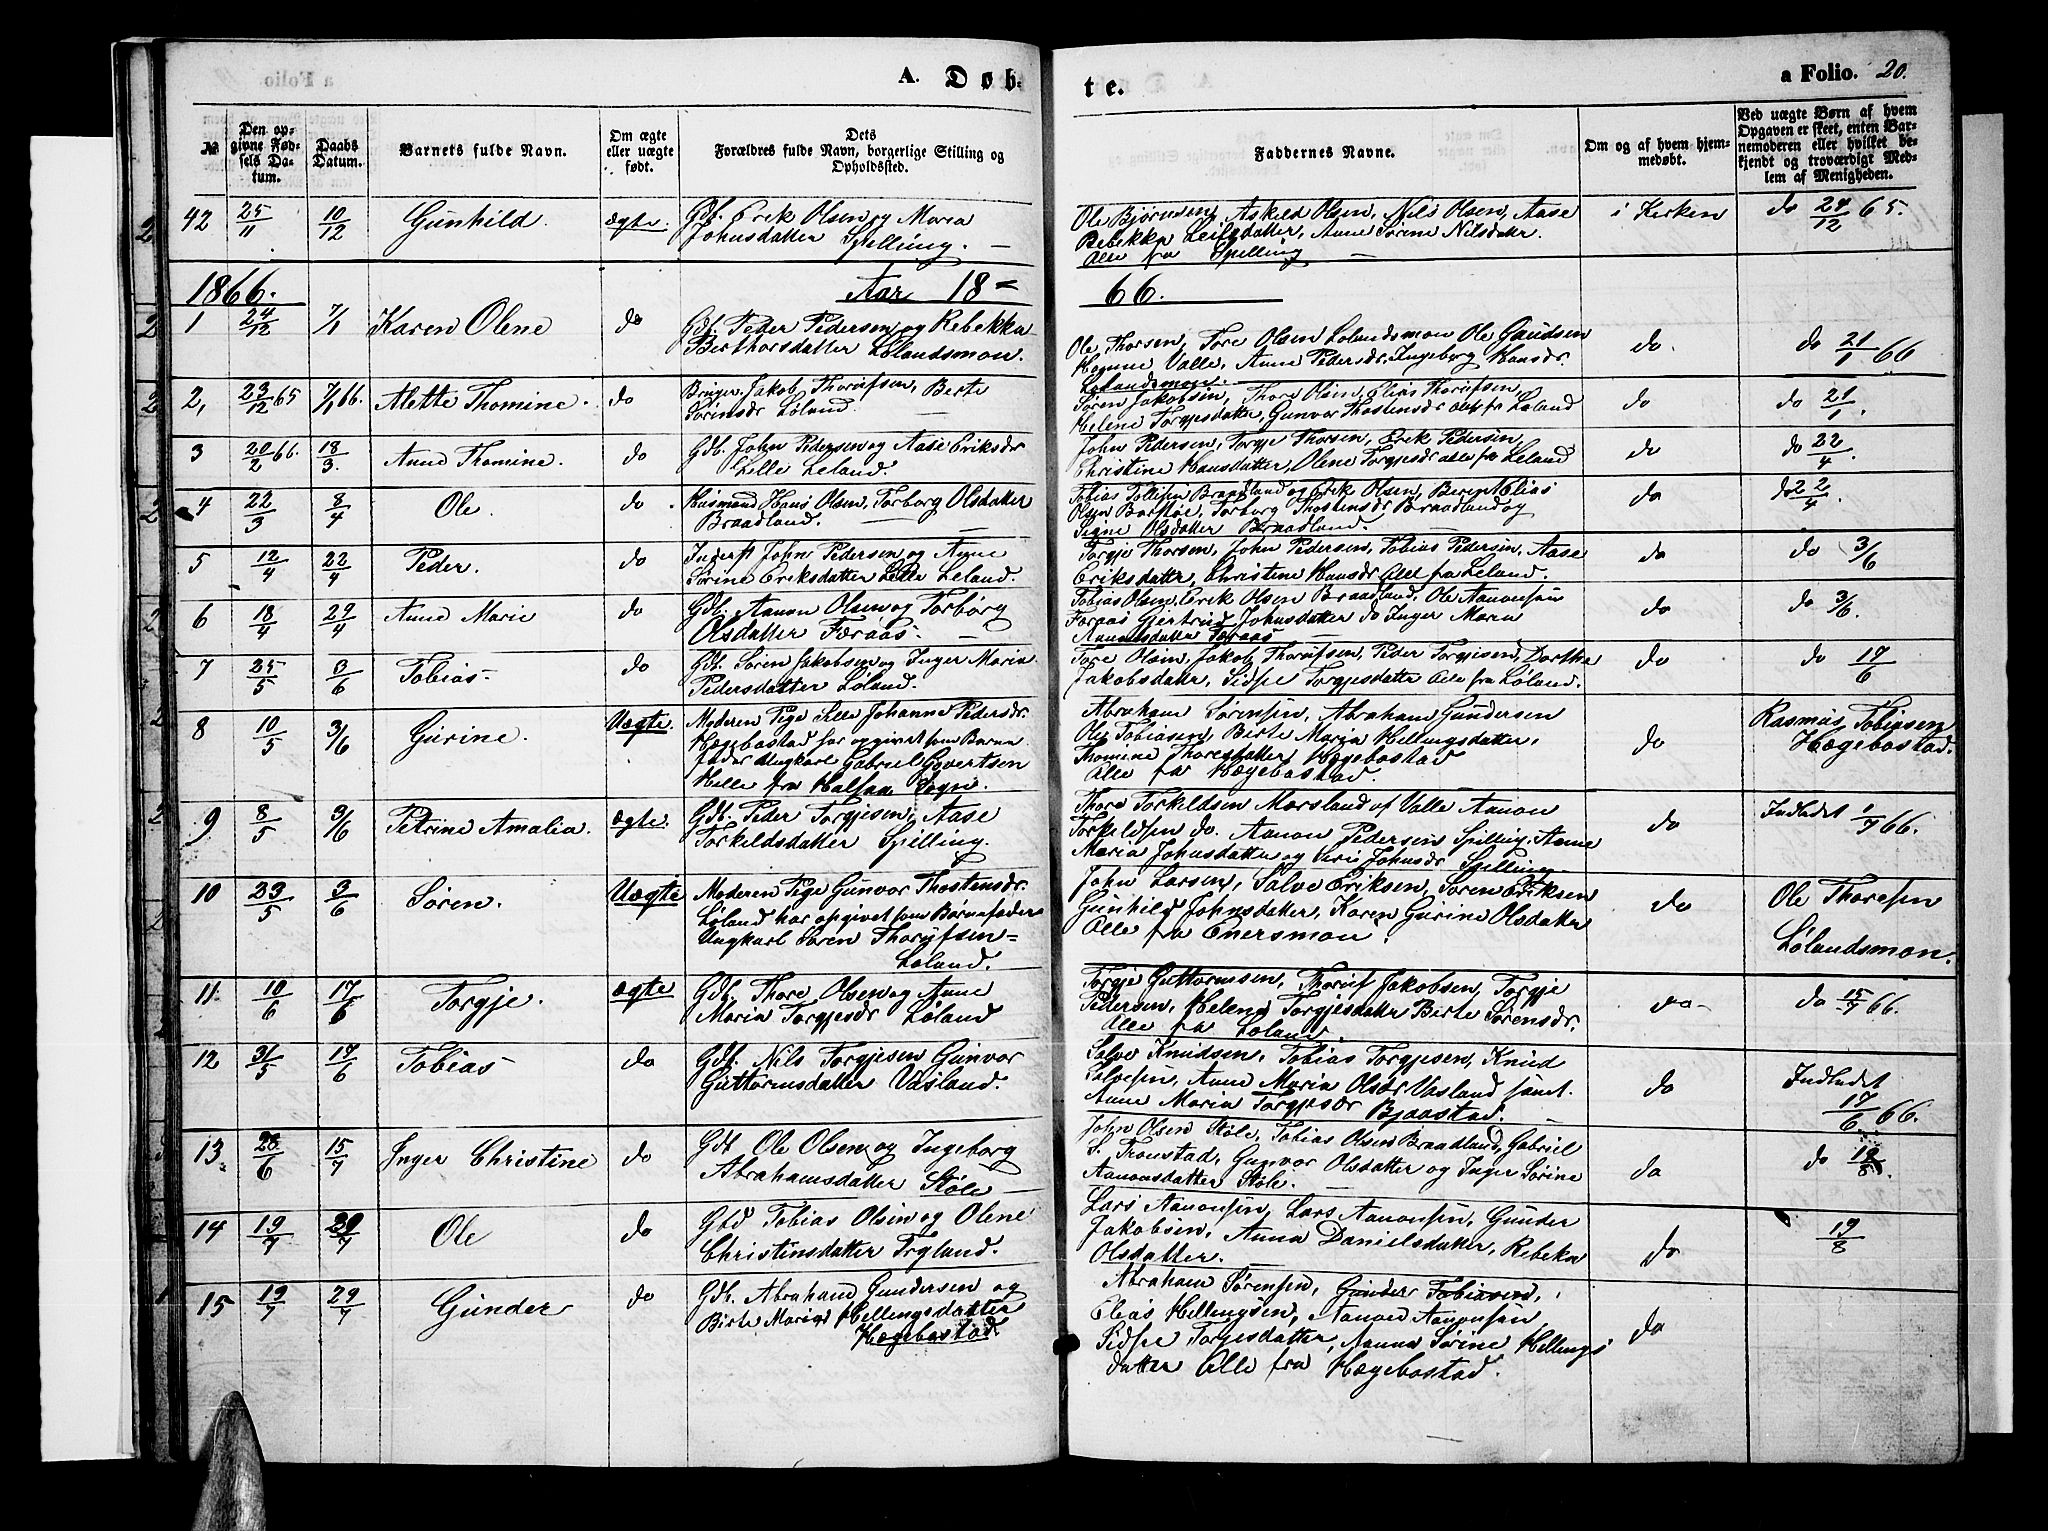 A. Døb-
te.
a Folio. 20.
№
Den op-
givne Fød-
sels Da-
tum.
Daabs
Datum.
Barnets fulde Navn.
Om ægte
eller uægte
født.
Dets
Forældres fulde Navn, borgerlige Stilling og
Opholdssted.
Faddernes Navne.
Om og af hvem hjem-
medøbt.
Ved uægte Børn af hvem
Opgaven er skeet, enten Bar-
nemoderen eller hvilket be-
kjendt og troværdigt Med-
lem af Menigheden.
42 25/11 10/12 Gunhild. ægte. Gdb. Erik Olsen og Maria
Johnsdatter Spilling. —
Ole Bjørnsen, Askild Olsen, Nils Olsen, Aase
Rebekka Leifsdatter, Anne Sørine Nilsdatter
Alle fra Spilling —
i Kirken do 24/12 65.
1866. Aar 18=
66.
1 24/12 7/1 Karen Olene do Gdb. Peder Pedersen og Rebekka
Berthorsdatter Lølandsmon.
Ole Thorsen, Tore Olsen Lølandsmon Ole Gundsen
Homme Valle, Anne Pedersdr. Ingeborg Hansdr.
Lølandsmon.
do. do 21/1 66
2, 23/12 65 7/1 66. Alette Thomine. do Bruger Jakob Thorufsen, Berte
Sørinsdr Løland. —
Søren Jakobsen, Thore Olsen, Elias Thorufsen,
Helene Torgjesdatter, Gunvor Thostensdr Alle fra Løland
do do 21/1.
3 20/2 66. 18/3. Anne Thomine. do Gdb. John Pedersen og Aase Eriksdr
Lille Leland.
John Pedersen, Torgje Thorsen, Erik Pedersen,
Christine Hansdatter, Olene Torgjesdr alle fra Leland
do do 22/4.
4 22/3 8/4 Ole. do. Husmand Hans Olsen, Torborg Olsdatter
Braadland. —
Tobias Tollefsen Braadland og Erik Olsen,
Olsen Barstøe, Torborg Thostensdr Braadland og
Signe Olsdatter Braadland.
do do 22/4.
5 12/4 22/4 Peder. do Inderst John Pedersen og Anne
Sørine Eriksdatter Lille Leland.
Torgje Thorsen, John Pedersen, Tobias Pedersen, Aase
Eriksdatter, Christine Hansdr Alle fra Leland.
do do 3/6
6 18/4 29/4 Anne Marie do Gdb. Aanon Olsen og Torborg
Olsdatter Færaas. —
Tobias Olsen, Erik Olsen Braadland, Ole Aanonsen
Færaas Gjertrud Johnsdatter do Inger Maria
Aanonsdatter Færaas —
do do 3/6.
7 25/5 3/6 Tobias- do Gdb. Søren Jakobsen og Inger Maria
Pedersdatter Løland.
Tore Olsen, Jakob Thorufsen, Peder Torgjesen, Dorthe
Jakobsdatter, Sidse Torgjesdatter Alle fra Løland.
do do 17/6
8 10/5 3/6 Gurine. Uægte. Moderen Pige Sille Johanne Pedersdr.
Hægebostad har opgivet som Barne
fader Ungkarl Gabriel Govertsen
Hille fra Halsaa Sogn.
Abraham Sørensen, Abraham Gundersen
Ole Tobiasen, Birte Maria Hellingsdatter,
Thomine Thoresdatter Hægebostad
Alle fra Hægebostad.
do Rasmus Tobiasen
Hægebostad.
9 8/5 3/6 Petrine Amalia. ægte. Gdb. Peder Torgjesen, Aase
Torkildsdatter Spilling.
Thore Torkildsen Mærsland af Valle Aanon
Torkildsen do. Aanon Pedersen Spilling, Anne
Maria Johnsdatter og Siri Johnsdr Spilling
do Indladet 1/7 66.
10 23/5 3/6 Søren. Uægte Moderen Pige Gunvor Thostensdr.
Løland har opgivet som Barnefader
Ungkarl Søren Thorufsen=
Løland.
John Larsen, Salve Eriksen, Søren Eriksen
Gunhild Johnsdatter, Karen Gurine Olsdatter
Alle fra Enersmon.
do Ole Thoresen
Lølandsmon.
11 10/6 17/6 Torgje. ægte Gdb. Thore Olsen og Anne
Maria Torgjesdr Løland
Torgje Guttormsen, Thoruf Jakobsen, Torgje
Pedersen, Helene Torgjesdatter Berte Sørensdr.
Alle fra Løland.
do- do 15/7 66.
12 31/5 17/6 Tobias- do Gdb. Nils Torgjesen Gunvor
Guttormsdatter Vasland.
Salve Knudsen, Tobias Torgjesen, Knud
Salvesen, Anne Maria Olsdr Vasland samt
Anne Maria Torgjesdr Bjaastad.
do Indladet
17/6 66.
13. 28/6 15/7 Inger Christine do Gdb Ole Olsen og Ingeborg
Abrahamsdatter Støle —
John Olsen Støle, Tobias Olsen Braadland, Gabriel
S. Tronstad, Gunvor Olsdatter og Inger Sørine
Aanonsdatter Støle. —
do do 19/8.
14 19/7 29/7 Ole do Gbd Tobias Olsen og Olene
Christinsdatter Trgland.
Lars Aanonsen, Lars Aanonsen, Gunder
Jakobsen, Anna Danielsdatter, Rebeka
Olsdatter.
do 19/8
15 19/7 29/7 Gunder do Gdb. Abraham Gundersen og
Birte Maria Hellingsdatter
Hægebostad
Abraham Sørensen, Gunder Tobiasen,
Elias Hellingsen, Aanon Aanonsen
Sidse Torgesdatter, Anna Sørine Hellings
datter Alle fra Hægebostad.
do